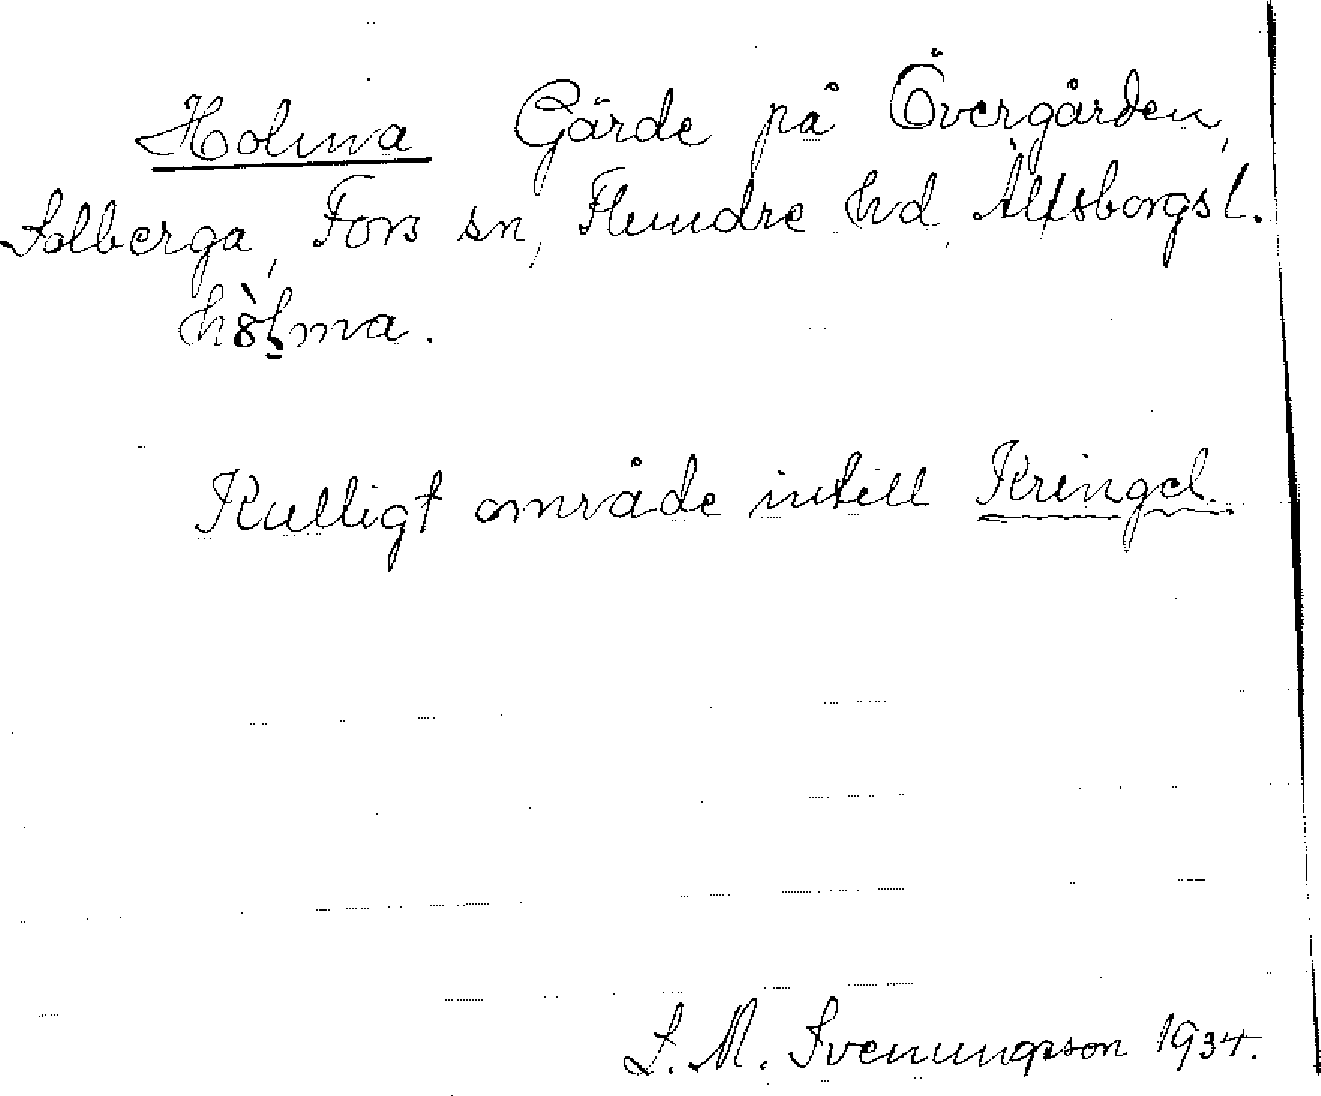 Holma Gärde på Övergården,
Solberga, Fors sn, Flundre hd, Älfsborgs l.
hòḷma.
Kulligt område intill Kringel.
S. M. Svenungsson 1934.